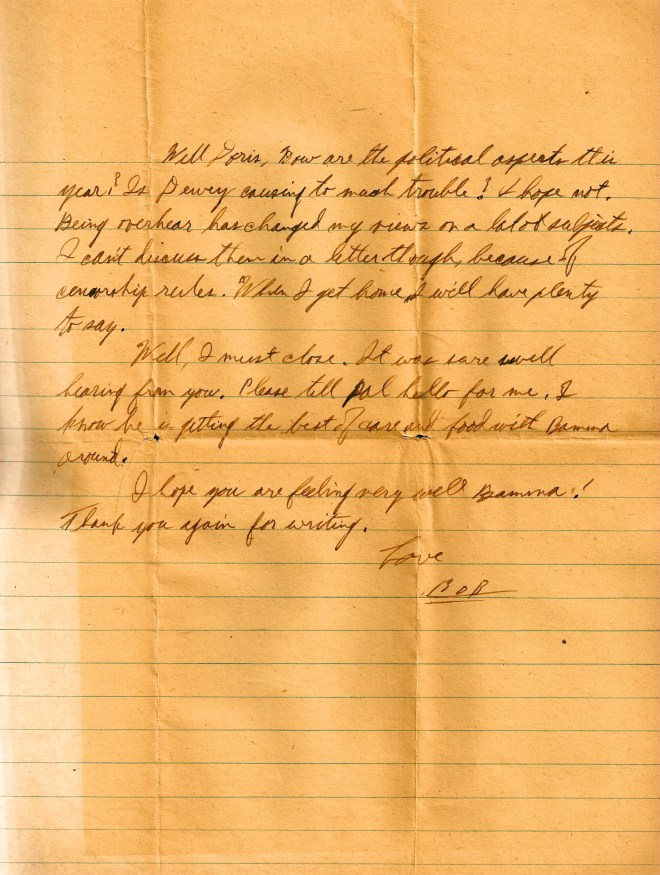 Well Doris, How are the political aspects this
year? Is Dewey causing to much trouble? I hope not.
Being overhear has changed my views on a lot of subjects.
I can't discuss them in a letter though, because of
censorship rules. When I get home I will have plenty
to say.
Well, I must close. It was sure swell
hearing from you. Please tell Pal hello for me. I
know he is getting the best of care and food with Bamma
around.
I hope you are feeling very well Bamma!
Thank you again for writing.
Love
Bob